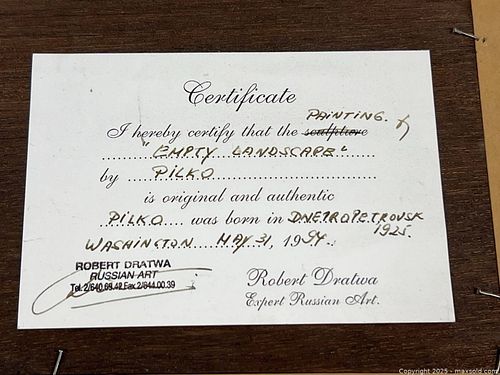 Certificate
PAINTING.
I hereby certify that the sculpture
"EMPTY LANDSCAPE"
by PILKO
is original and authentic
PILKO was born in DNETROPETROVSK
1925.
WASHINGTON MAY 31, 1994.
ROBERT DRATWA
RUSSIAN ART
Tel. 2/640.69.42 Fax 2/644.00.39
Robert Dratwa
Expert Russian Art.
Copyright 2025 - maxsold.com